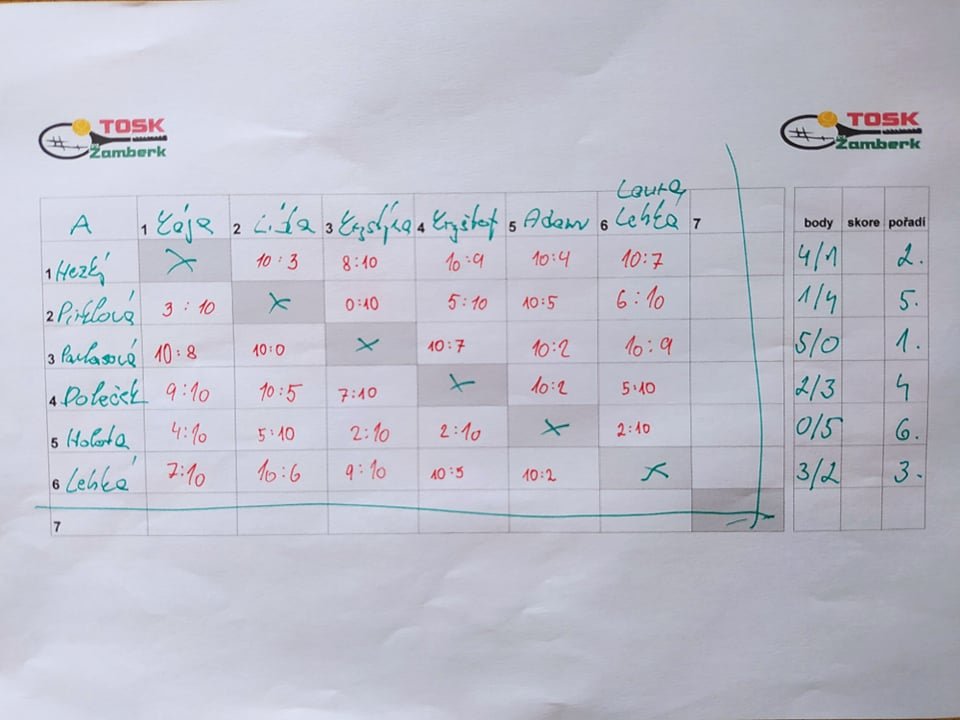 TOSK Žamberk TOSK Žamberk
A 1 Kája 2 Lída 3 Krystýna 4 Kryštof 5 Adam 6 Laura Lehká 7 body skore pořadí
1 Hezký X 10:3 8:10 10:9 10:4 10:7 4/1 2.
2 3:10 X 0:10 5:10 10:5 6:10 1/4 5.
3 Pavlasová 10:8 10:0 X 10:7 10:2 10:9 5/0 1.
4 Doleček 9:10 10:5 7:10 X 10:2 5:10 2/3 4
5 Holota 4:10 5:10 2:10 2:10 X 2:10 0/5 6.
6 Lehká 7:10 10:6 9:10 10:5 10:2 X 3/2 3.
7